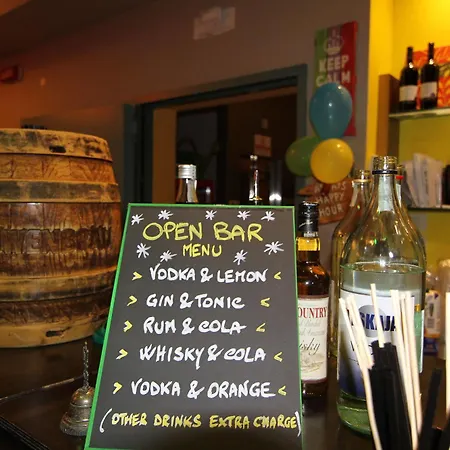 KEEP
CALM
OPEN BAR
MENU
> VODKA & LEMON <
> GIN & TONIC <
> RUM & COLA <
> WHISKY & COLA <
> VODKA & ORANGE <
(OTHER DRINKS EXTRA CHARGE)
COUNTRY